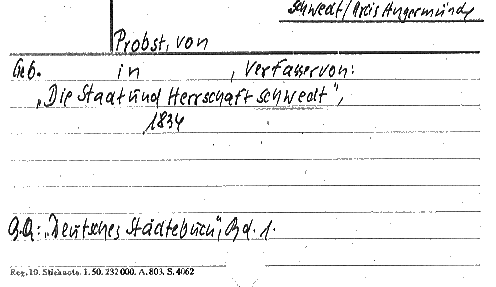 Schwedt/Kreis Angermünde
Probst, von
Geb. in , Verfasser von:
„Die Stadt und Herrschaft Schwedt",
1834
Q.Q.: „Deutsches Städtebuch", Bd. 1.
Reg. 10. Stichnote. 1. 50. 232 000. A. 803. S. 4062